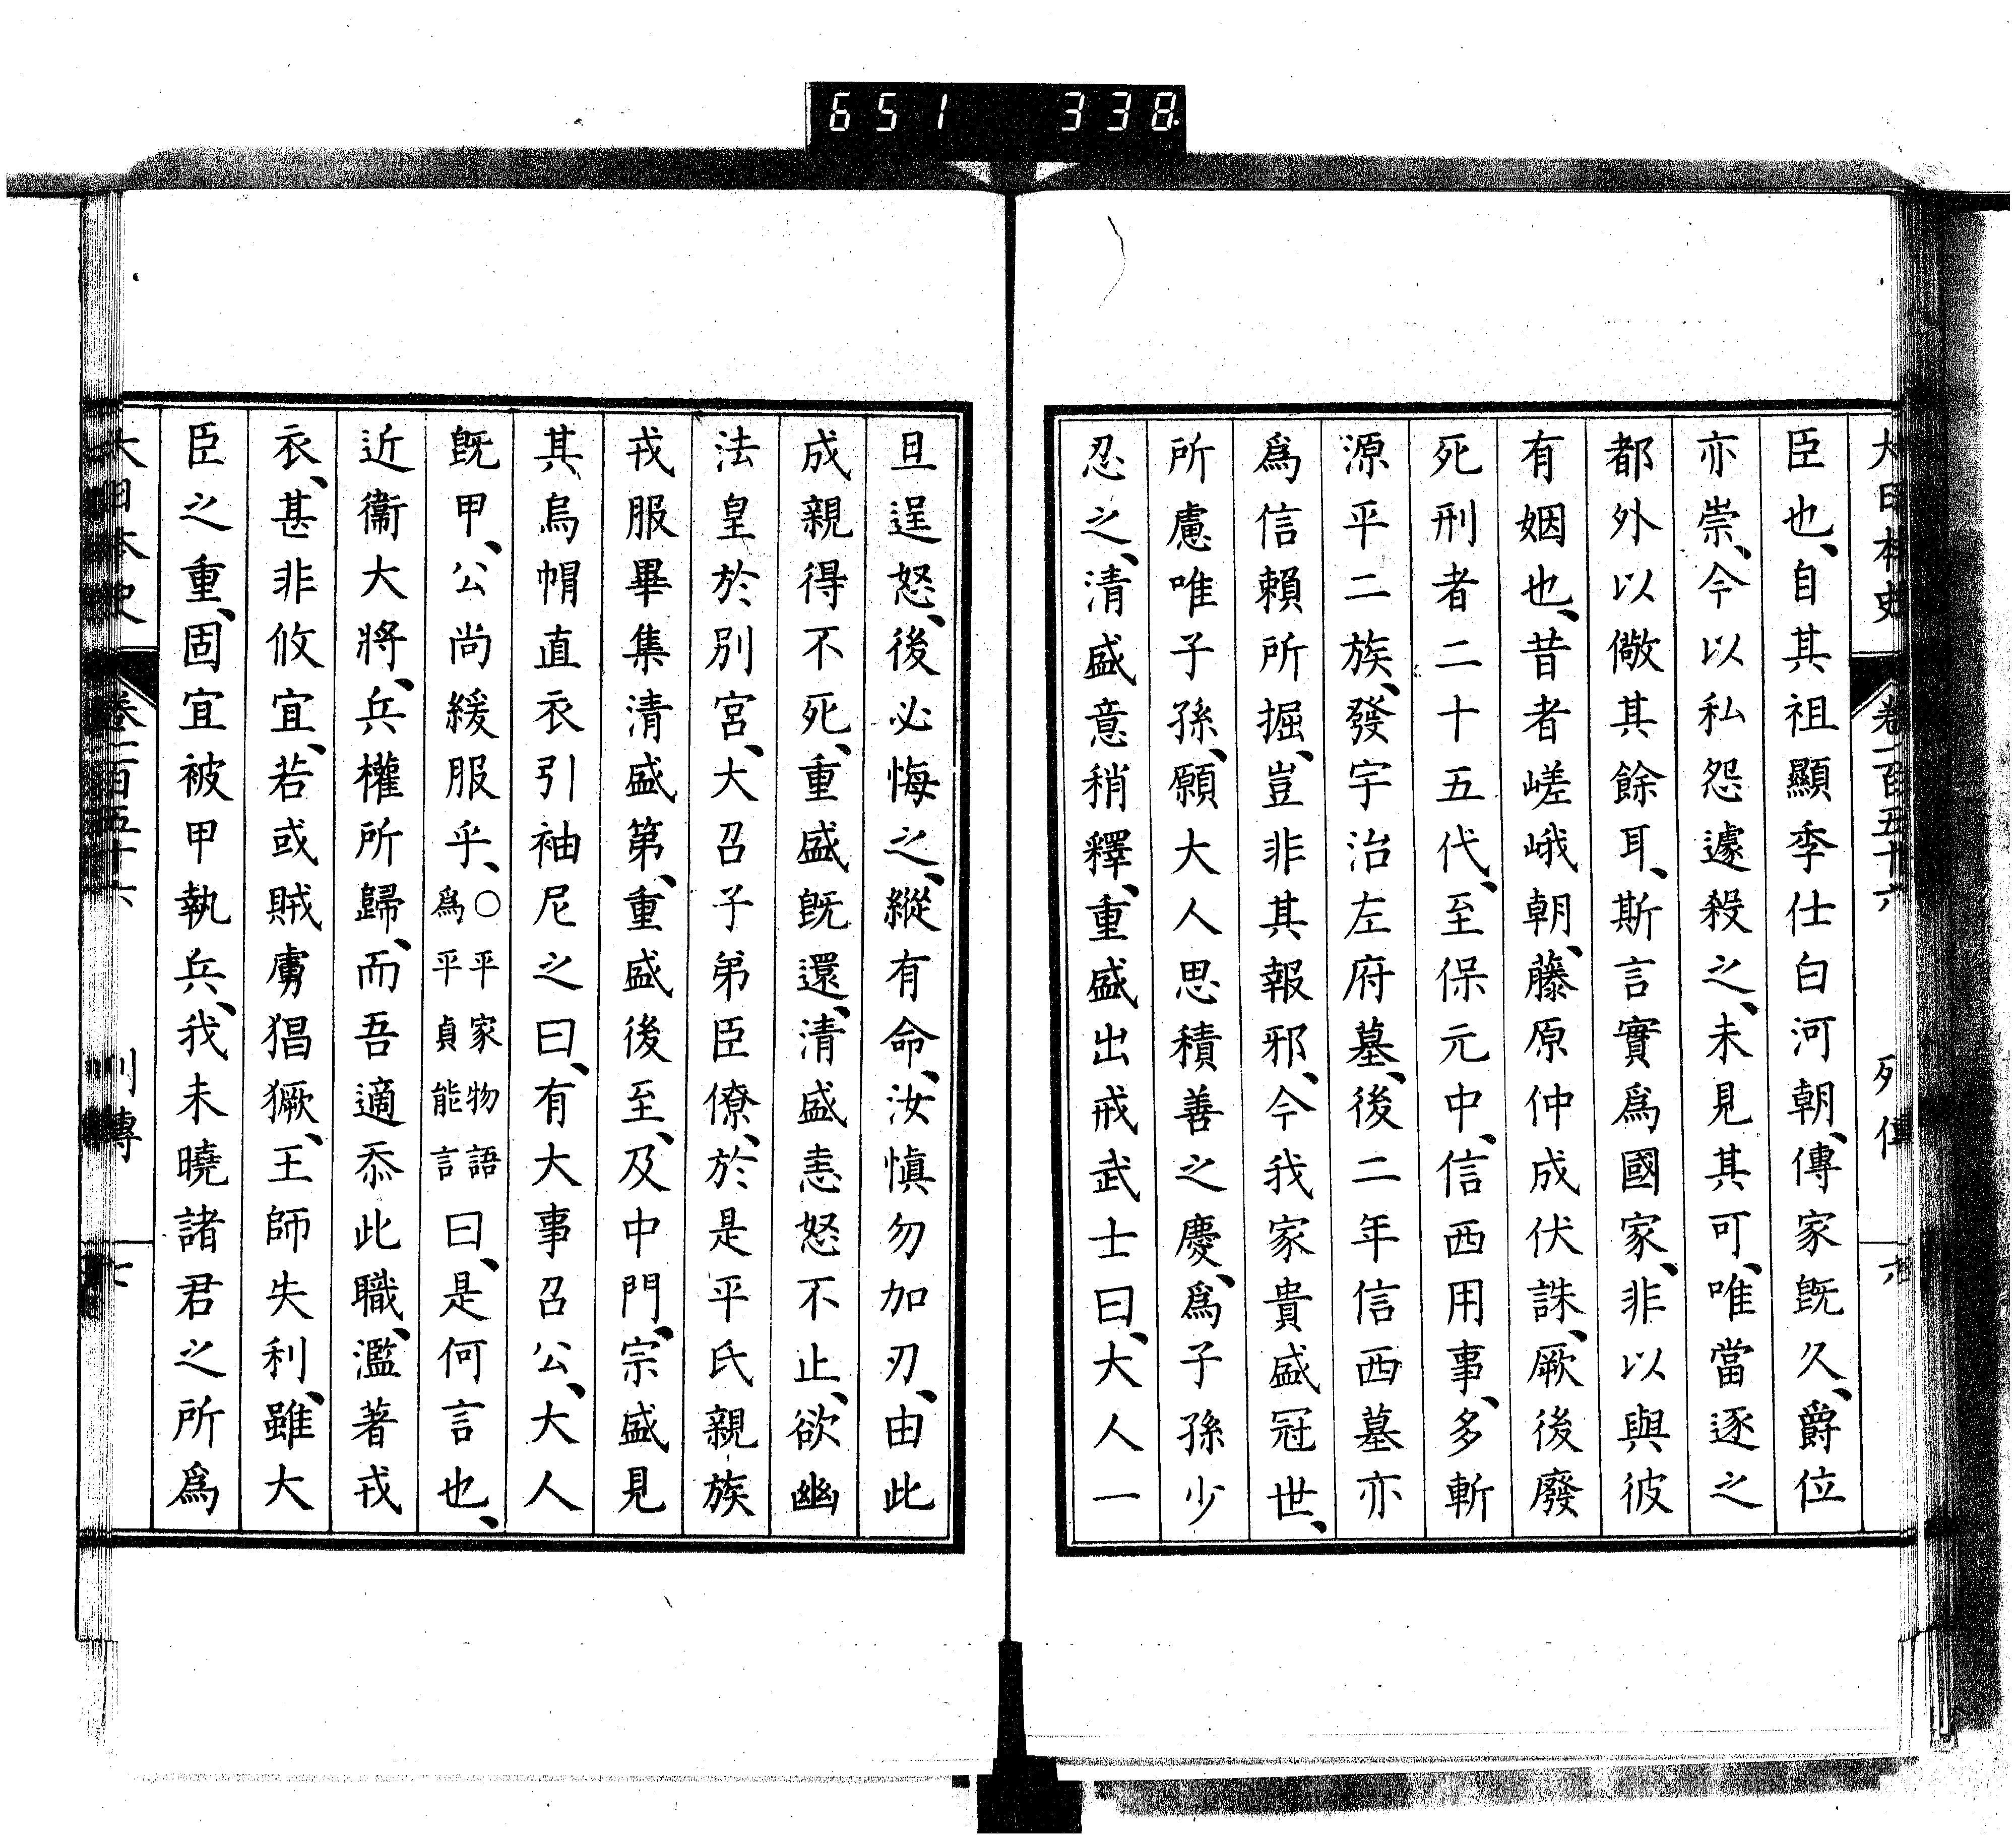 651 338
大日本史 卷一百五十六 列傳 六
臣也、自其祖顯季仕白河朝、傳家既久、爵位
亦崇、今以私怨遽殺之、未見其可、唯當逐之
都外以儆其餘耳、斯言實爲國家、非以與彼
有姻也、昔者嵯峨朝、藤原仲成伏誅、厥後廢
死刑者二十五代、至保元中、信西用事、多斬
源平二族、發宇治左府墓、後二年信西墓亦
爲信賴所掘、豈非其報邪、今我家貴盛冠世、
所慮唯子孫、願大人思積善之慶、爲子孫少
忍之、清盛意稍釋、重盛出戒武士曰、大人一
旦逞怒、後必悔之、縱有命、汝愼勿加刃、由此
成親得不死、重盛既還、清盛恚怒不止、欲幽
法皇於別宮、大召子弟臣僚、於是平氏親族
戎服畢集清盛第、重盛後至、及中門、宗盛見
其烏帽直衣引袖尼之曰、有大事召公、大人
既甲、公尚緩服乎、○平家物語爲平貞能言曰、是何言也、
近衞大將、兵權所歸、而吾適忝此職、濫著戎
衣、甚非攸宜、若或賊虜猖獗、王師失利、雖大
臣之重、固宜被甲執兵、我未曉諸君之所爲
大日本史 卷一百五十六 列傳 七